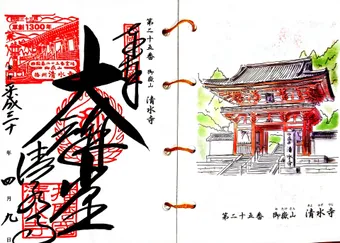 第二十五番 御嶽山 清水寺
奉拝
大講堂
清水寺
平成三十年 四月九日
草創1300年
播州 清水寺
第二十五番 御嶽山 清水寺